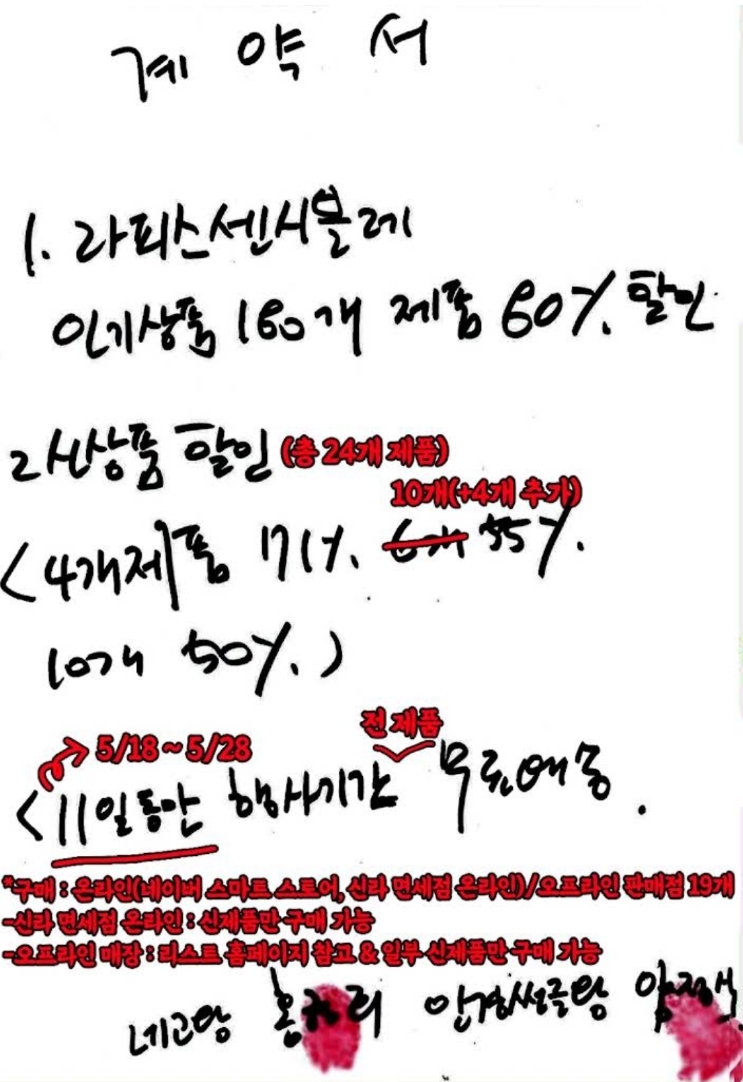 계약서
1. 라피스센시블레
인기상품 160개 제품 60% 할인
2 신상품 할인 (총 24개 제품)
10개(+4개 추가)
<4개제품 71% 6개 55%.
10개 50%.)
5/18 ~ 5/28 전 제품
<11일동안 행사기간 무료배송.
*구매 : 온라인(네이버 스마트 스토어, 신라 면세점 온라인)/오프라인 판매점 19개
-신라 면세점 온라인 : 신제품만 구매 가능
-오프라인 매장 : 리스트 홈페이지 참고 & 일부 신제품만 구매 가능
네고왕 홍 안경썬글왕